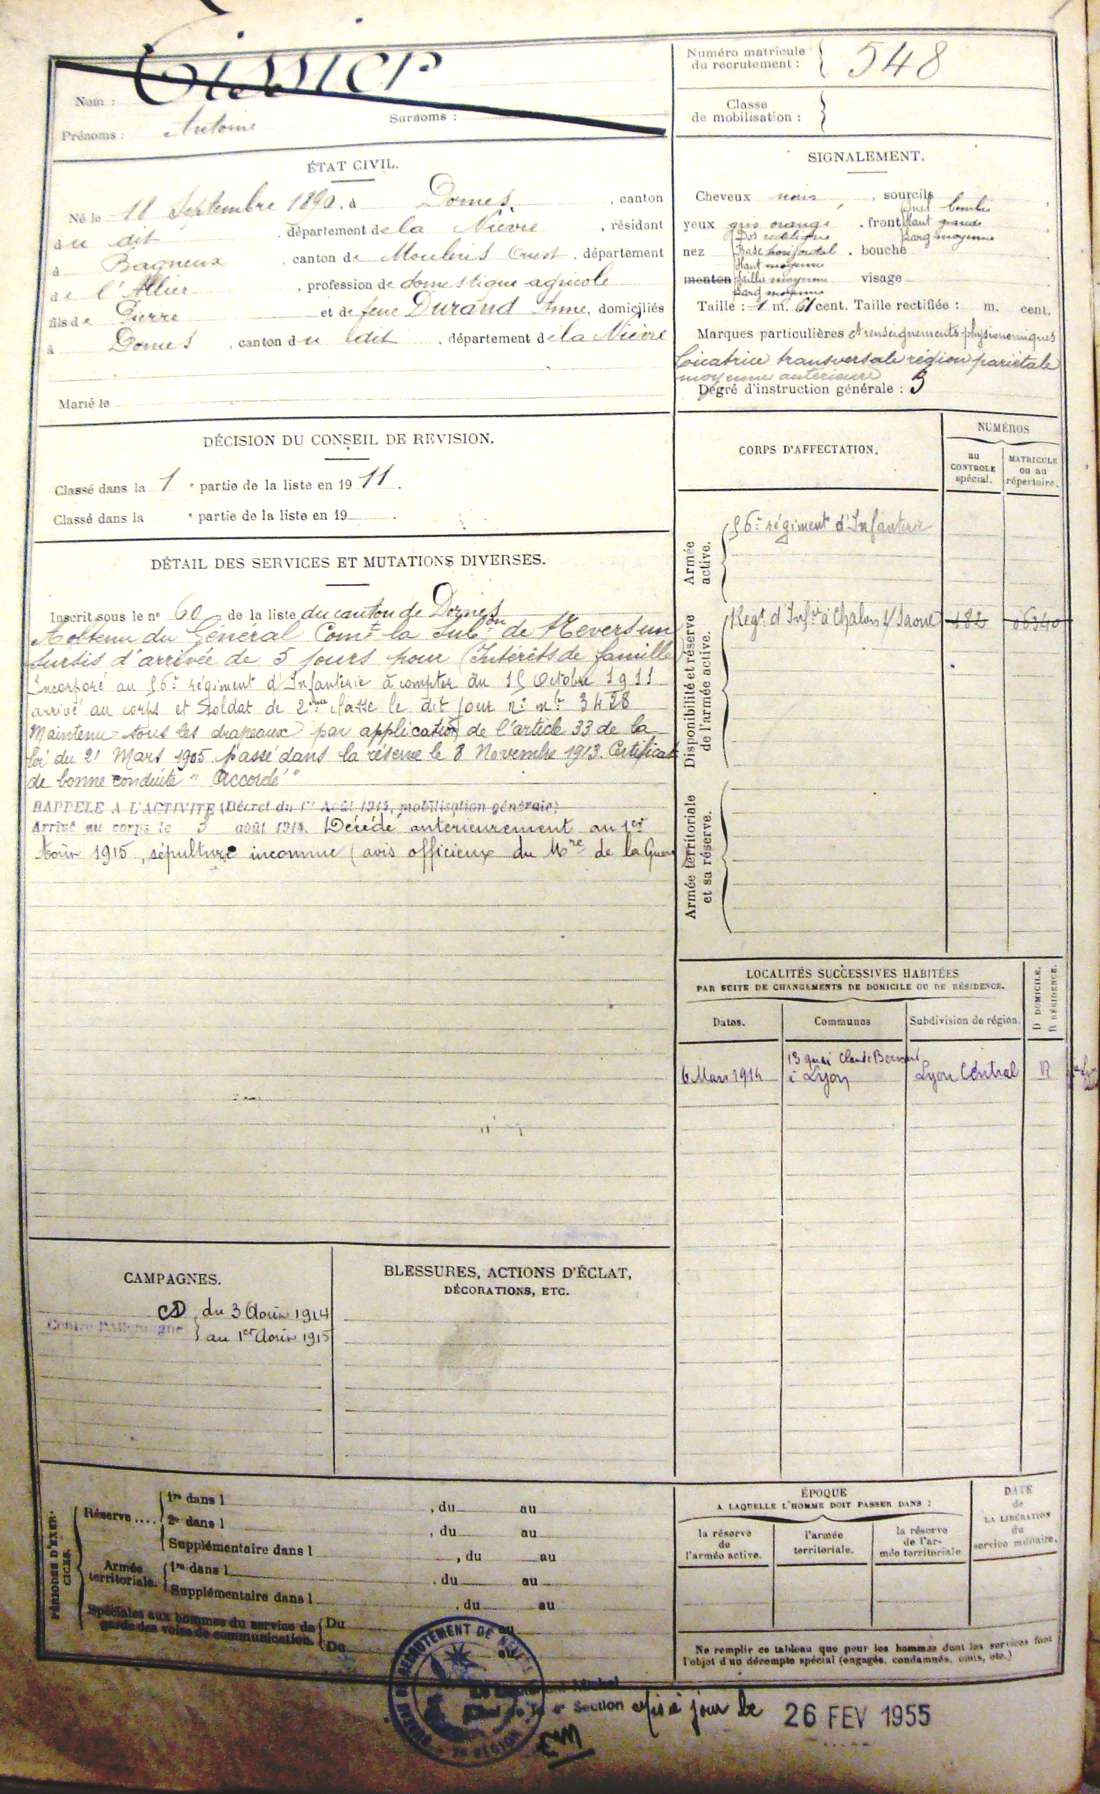 Nom : Tissier
Prénoms : Antoine Surnoms :
Numéro matricule du recrutement : 548
Classe de mobilisation :
ÉTAT CIVIL.
Né le 18 Septembre 1890, à Dornes, canton
du dit, département de la Nièvre, résidant
à Bagneux, canton de Moulins Ouest, département
de l'Allier, profession de domestique agricole
fils de Pierre et de feue Durand Anne, domiciliés
à Dornes, canton du dit, département de la Nièvre
Marié le
SIGNALEMENT.
Cheveux noirs, sourcils
yeux gris orangé, front Incl bombé Haut grande Parg moyenne
nez Dos rectiligne Base horizontal Haut moyenne Saillie moyenne Parg moyenne, bouche
menton visage
Taille : 1 m. 61 cent. Taille rectifiée : m. cent.
Marques particulières et renseignements physionomiques
Cicatrice transversale région pariétale
moyenne antérieure
Degré d'instruction générale : 3
DÉCISION DU CONSEIL DE REVISION.
Classé dans la 1 e partie de la liste en 1911.
Classé dans la e partie de la liste en 19 .
DÉTAIL DES SERVICES ET MUTATIONS DIVERSES.
Inscrit sous le n° 60 de la liste du canton de Dornes
A obtenu du Général Comt la Subon de Nevers un
sursis d'arrivée de 5 jours pour (Intérêts de famille)
Incorporé au 56e régiment d'Infanterie à compter du 15 Octobre 1911
arrivé au corps et Soldat de 2me classe le dit jour no mle 3428
Maintenu sous les drapeaux par application de l'article 33 de la
loi du 21 Mars 1905 passé dans la réserve le 8 Novembre 1913. Certificat
de bonne conduite "Accordé"
RAPPELÉ A L'ACTIVITÉ (Décret du 1er Août 1914, mobilisation générale)
Arrivé au corps le 3 août 1914. Décédé antérieurement au 1er
Août 1915, sépulture inconnue (avis officieux du Mre de la Guerre
CORPS D'AFFECTATION.
NUMÉROS
au CONTROLE spécial.
MATRICULE ou au répertoire.
Armée active.
56e régiment d'Infanterie
Disponibilité et réserve de l'armée active.
Regt d'Infie à Chalon s/ Saone 182 06340
Armée territoriale et sa réserve.
LOCALITÉS SUCCESSIVES HABITÉES
PAR SUITE DE CHANGEMENTS DE DOMICILE OU DE RÉSIDENCE.
D DOMICILE.
R RÉSIDENCE.
Dates. Communes Subdivision de région.
6 Mars 1914 13 quai Claude Bernard à Lyon Lyon Central R
CAMPAGNES.
CD du 3 Août 1914
Contre l'Allemagne au 1er Août 1915
BLESSURES, ACTIONS D'ÉCLAT,
DÉCORATIONS, ETC.
PÉRIODES D'EXERCICES.
Réserve .... 1re dans l , du au
2e dans l , du au
Supplémentaire dans l , du au
Armée territoriale. 1re dans l , du au
Supplémentaire dans l , du au
Spéciales aux hommes du service de garde des voies de communication. Du au
Du
ÉPOQUE
A LAQUELLE L'HOMME DOIT PASSER DANS :
la réserve de l'armée active.
l'armée territoriale.
la réserve de l'armée territoriale
DATE de LA LIBÉRATION du service militaire.
Ne remplir ce tableau que pour les hommes dont les services font
l'objet d'un décompte spécial (engagés, condamnés, omis, etc.)
BUREAU DE RECRUTEMENT DE NEVERS
Section
Mis à jour le 26 FEV 1955